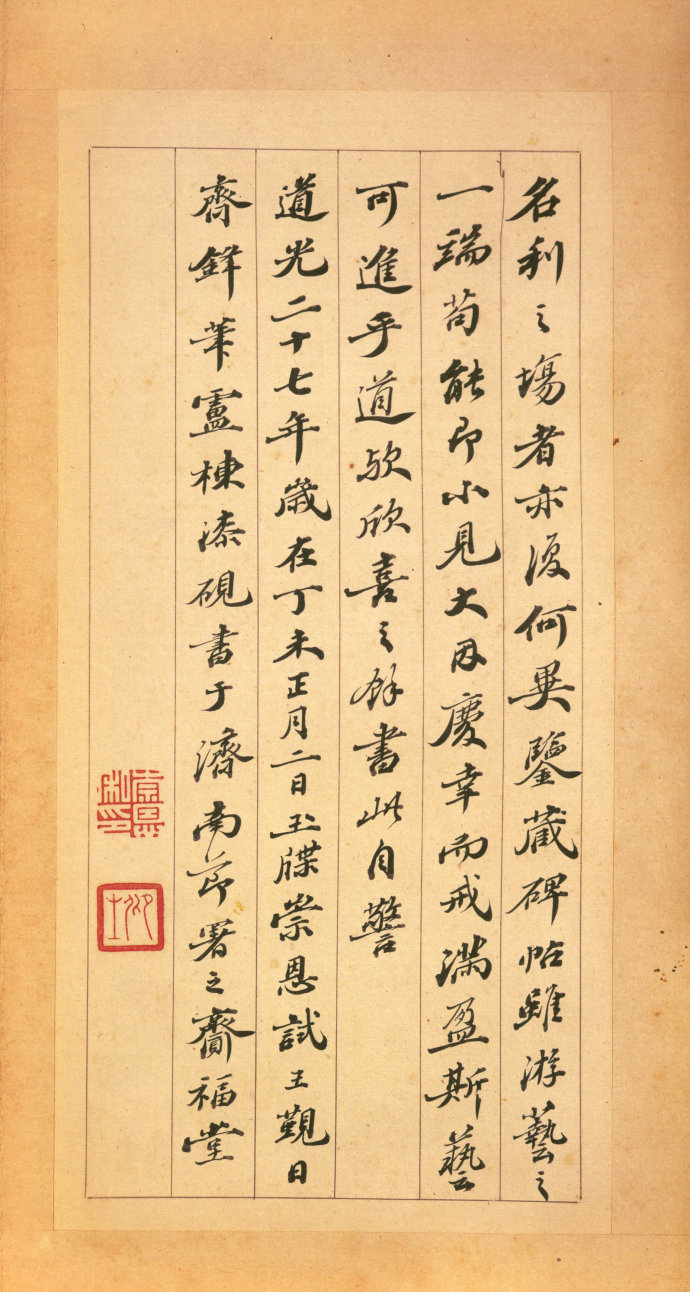 名利之塲者亦復何異鑒藏碑帖雖游藝之
一端苟能即小見大因慶幸而戒滿盈斯藝
可進乎道歟欣喜之餘書此自警
道光二十七年歲在丁未正月二日玉牒崇恩試王觐日
齋鋒筆盧棟漆硯書于濟南節署之齎福堂